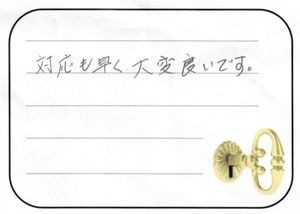 対応も早く大変良いです。